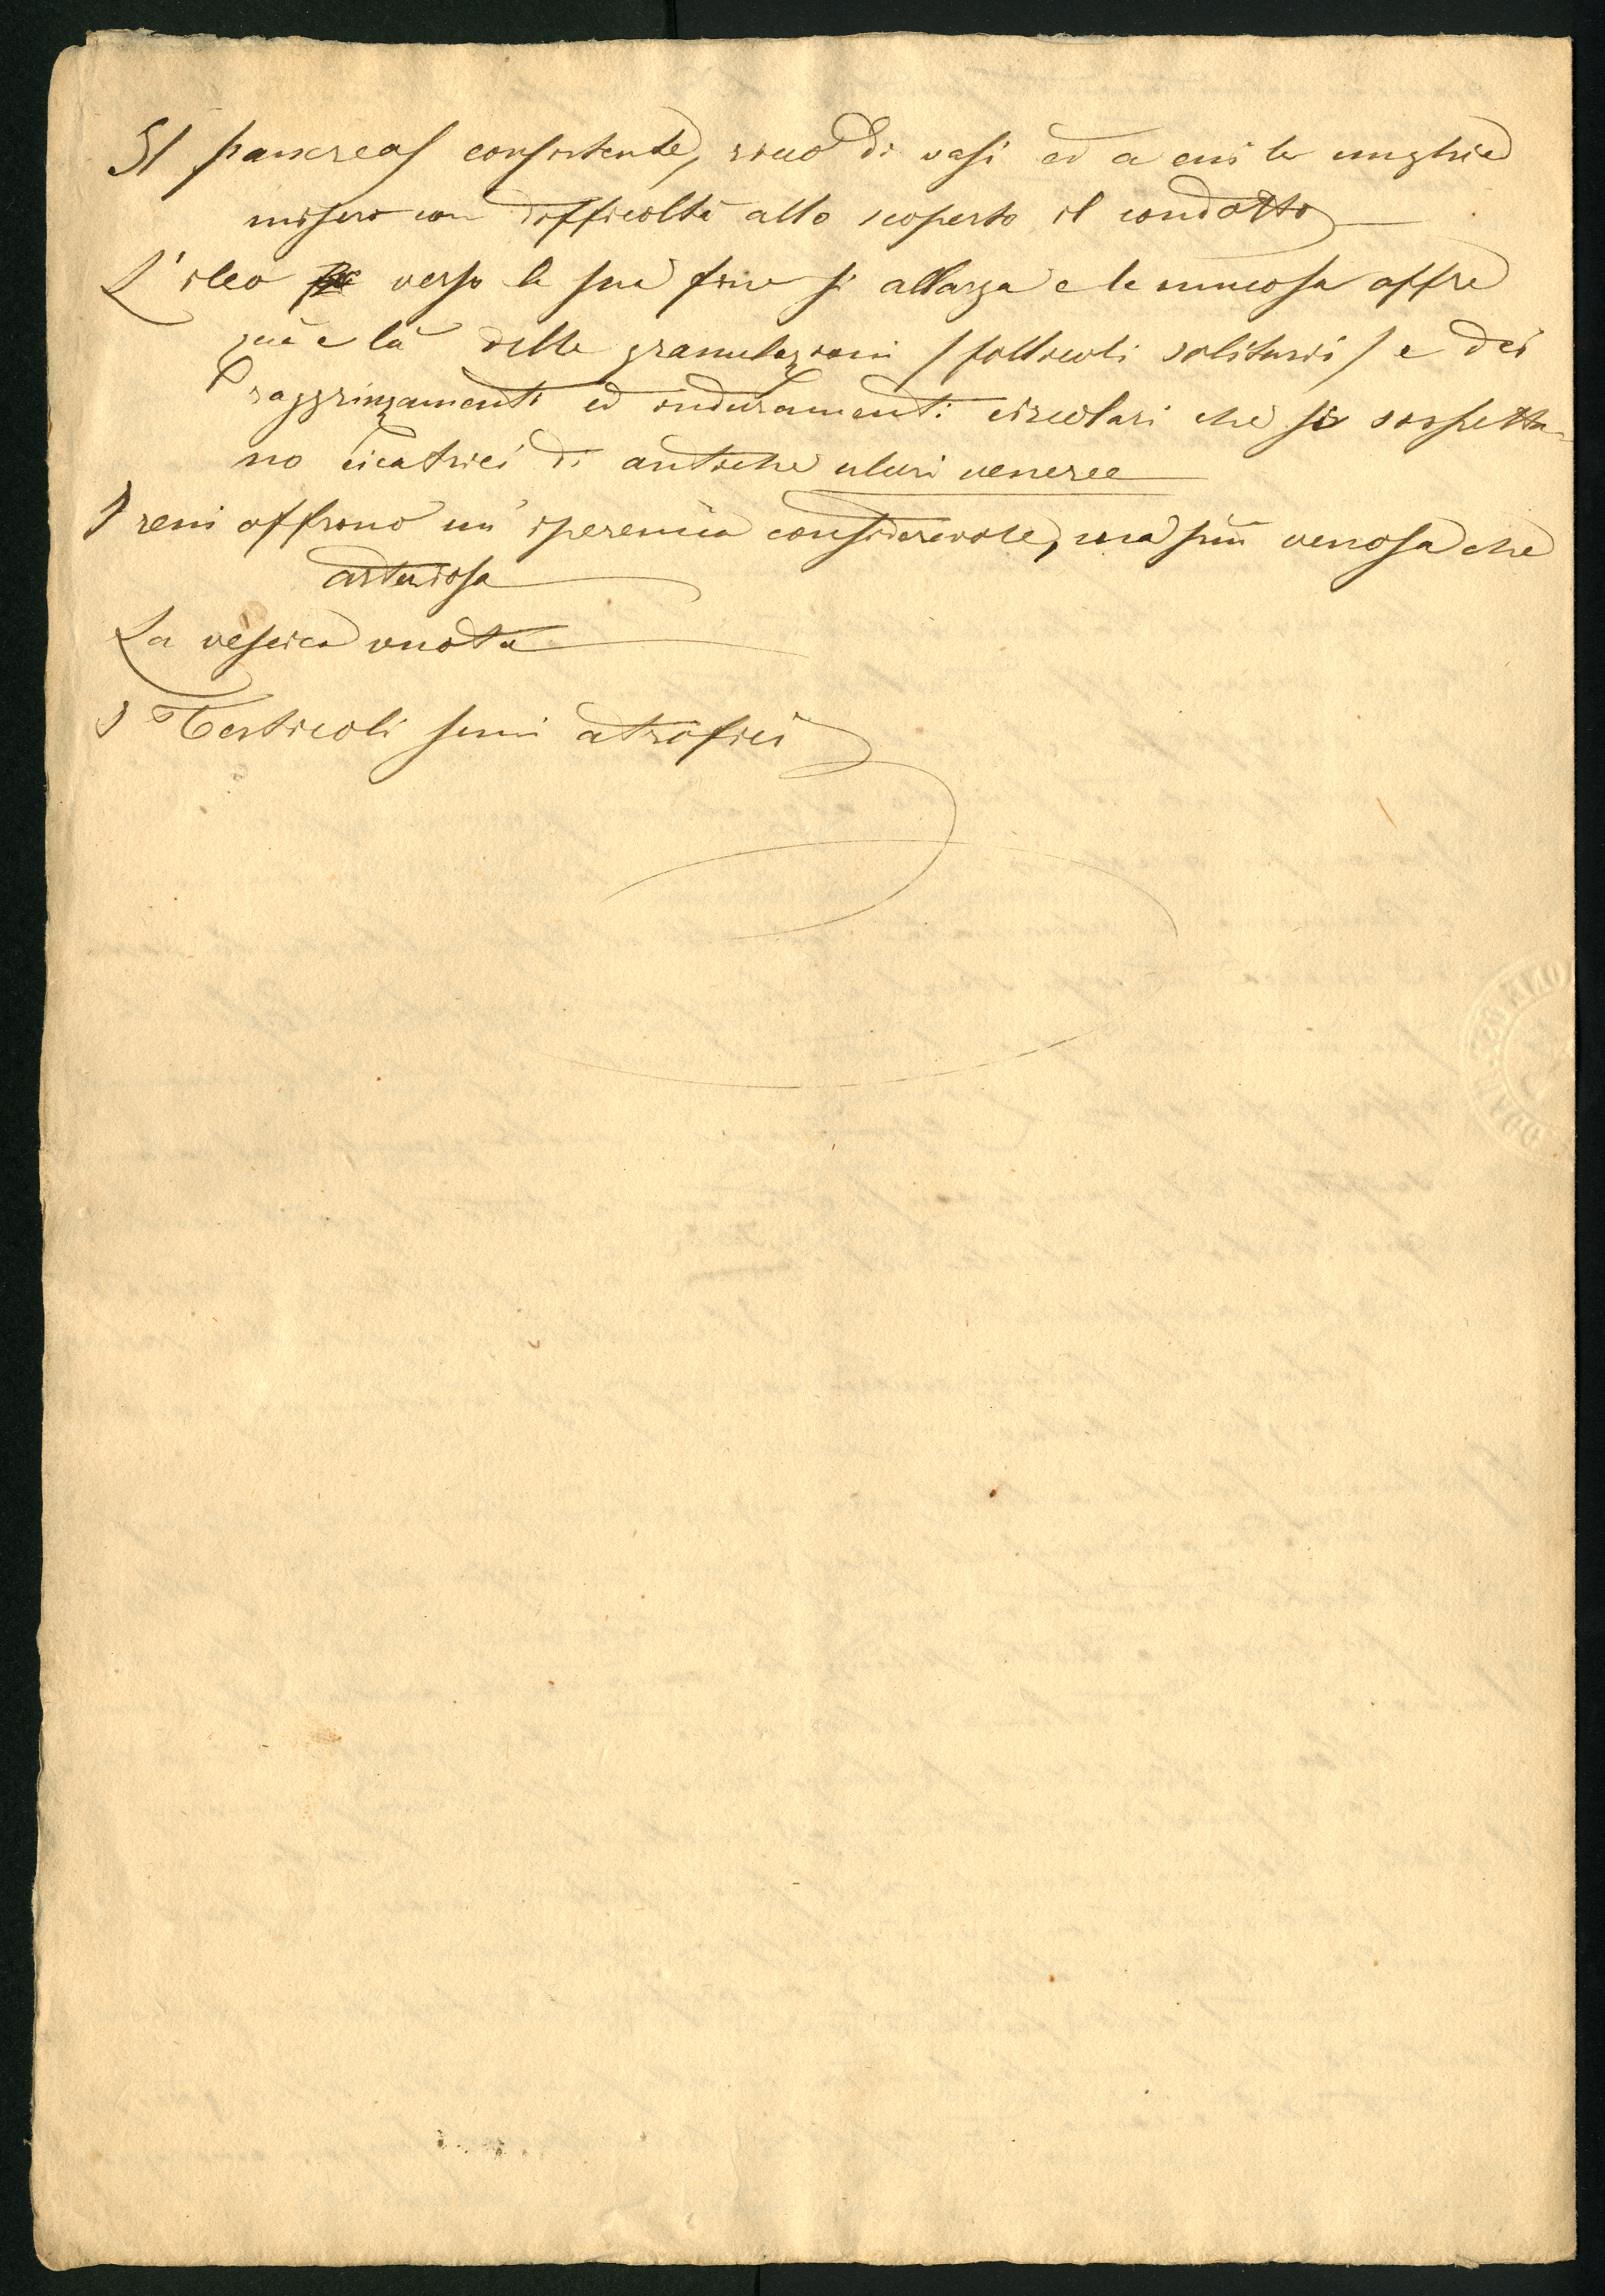 Il pancreas consistente, ricco di vasi ed a cui le unghie
misero con difficoltà allo scoperto il condotto
L'ileo verso la sua fine si allarga e la mucosa offre
quà e là delle granulazioni / follicoli solitarii / e dei
raggrinzamenti ed induramenti circolari che si sospetta-
no cicatrici di antiche ulceri veneree
I reni offrono un' iperemia considerevole, ma più venosa che
arteriosa
La vescica vuota
I Testicoli semi atrofici